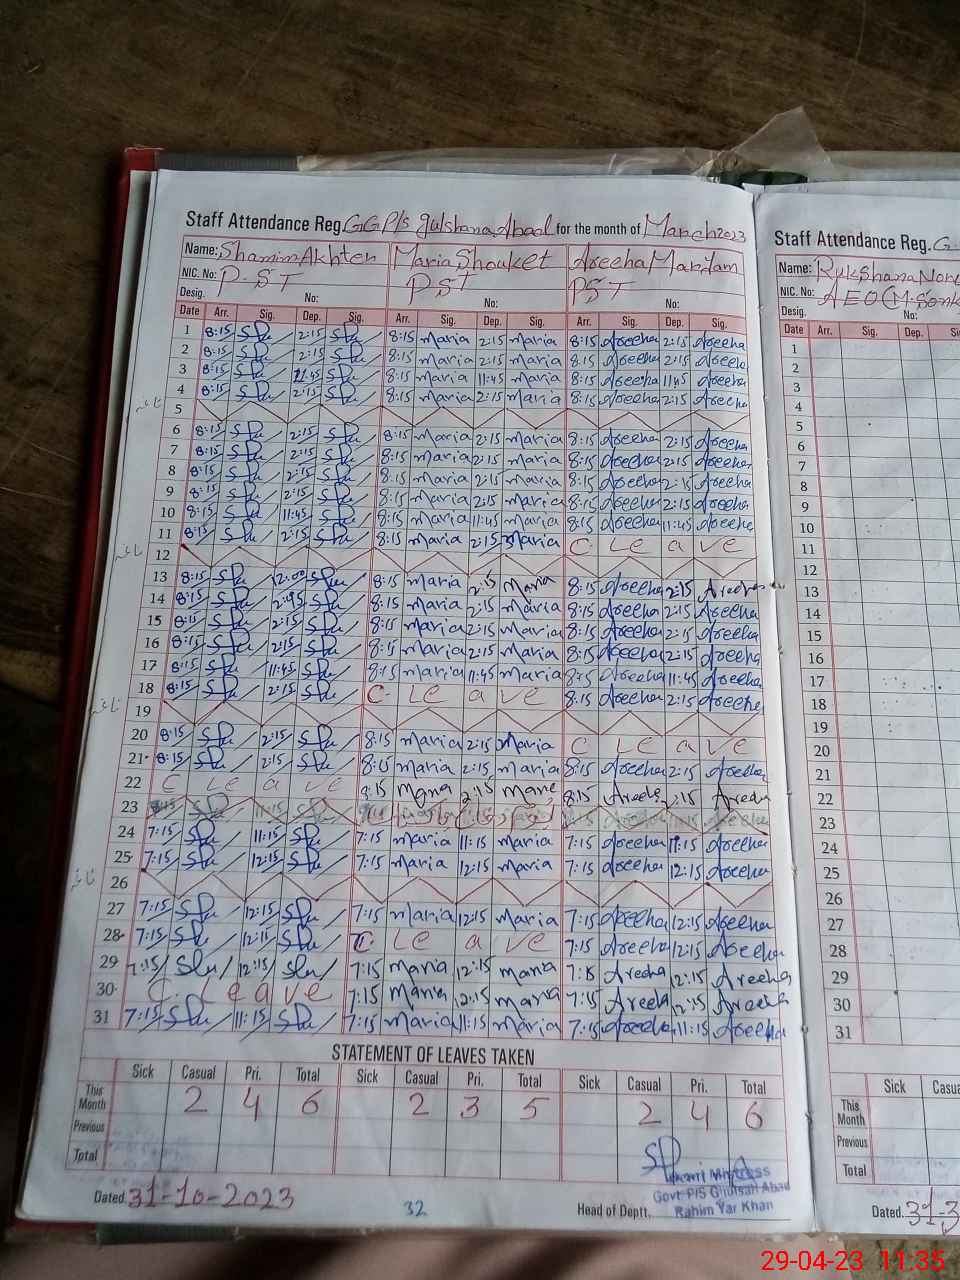 Staff Attendance Reg. GGP/s gulshana Abad for the month of March 2023
Name: Shamim Akhter Maria Shouket Areeha Mariam
NIC. No: P.ST PST PST
Desig. No: No: No:
Date Arr. Sig. Dep. Sig. Arr. Sig. Dep. Sig. Arr. Sig. Dep. Sig.
1 8:15 2:15 8:15 maria 2:15 maria 8:15 Areeha 2:15 Areeha
2 8:15 2:15 8:15 maria 2:15 maria 8:15 Areeha 2:15 Areeha
3 8:15 11:45 8:15 maria 11:45 maria 8:15 Areeha 11:45 Areeha
4 8:15 2:15 8:15 maria 2:15 maria 8:15 Areeha 2:15 Areeha
5
6 8:15 2:15 8:15 maria 2:15 maria 8:15 Areeha 2:15 Areeha
7 8:15 2:15 8:15 maria 2:15 maria 8:15 Areeha 2:15 Areeha
8 8:15 2:15 8:15 maria 2:15 maria 8:15 Areeha 2:15 Areeha
9 8:15 2:15 8:15 maria 2:15 maria 8:15 Areeha 2:15 Areeha
10 8:15 11:45 8:15 maria 11:45 maria 8:15 Areeha 11:45 Areeha
11 8:15 2:15 8:15 maria 2:15 maria C Le a ve
12
13 8:15 12:00 8:15 maria 2:15 Maria 8:15 Areeha 2:15 Areeha
14 8:15 2:45 8:15 maria 2:15 maria 8:15 Areeha 2:15 Areeha
15 8:15 2:15 8:15 maria 2:15 maria 8:15 Areeha 2:15 Areeha
16 8:15 2:15 8:15 maria 2:15 maria 8:15 Areeha 2:15 Areeha
17 8:15 11:45 8:15 maria 11:45 maria 8:15 Areeha 11:45 Areeha
18 8:15 2:15 C Le a ve 8:15 Areeha 2:15 Areeha
19
20 8:15 2:15 8:15 maria 2:15 maria C Le a ve
21 8:15 2:15 8:15 maria 2:15 maria 8:15 Areeha 2:15 Areeha
22 C Le a ve 8:15 Maria 2:15 Marie 8:15 Areeha 2:15 Areeha
23
24 7:15 11:15 7:15 maria 11:15 maria 7:15 Areeha 11:15 Areeha
25 7:15 12:15 7:15 maria 12:15 maria 7:15 Areeha 12:15 Areeha
26
27 7:15 12:15 7:15 maria 12:15 maria 7:15 Areeha 12:15 Areeha
28 7:15 12:15 C Le a ve 7:15 Areeha 12:15 Areeha
29 7:15 12:15 7:15 maria 12:15 maria 7:15 Areeha 12:15 Areeha
30 C. Leave 7:15 Maria 12:15 maria 7:15 Areeha 12:15 Areeha
31 7:15 11:15 7:15 maria 11:15 maria 7:15 Areeha 11:15 Areeha
STATEMENT OF LEAVES TAKEN
Sick Casual Pri. Total Sick Casual Pri. Total Sick Casual Pri. Total
This Month 2 4 6 2 3 5 2 4 6
Previous
Total
Mistress
Govt P/S Gulshan Abad
Rahim Yar Khan
Dated. 31-10-2023 32 Head of Deptt.
Staff Attendance Reg. G.
Name: Rukshana
NIC. No: AEO (M.
Desig. No:
Date Arr. Sig. Dep. Si
1
2
3
4
5
6
7
8
9
10
11
12
13
14
15
16
17
18
19
20
21
22
23
24
25
26
27
28
29
30
31
Sick Casua
This Month
Previous
Total
Dated. 31-3
29-04-23 11:35